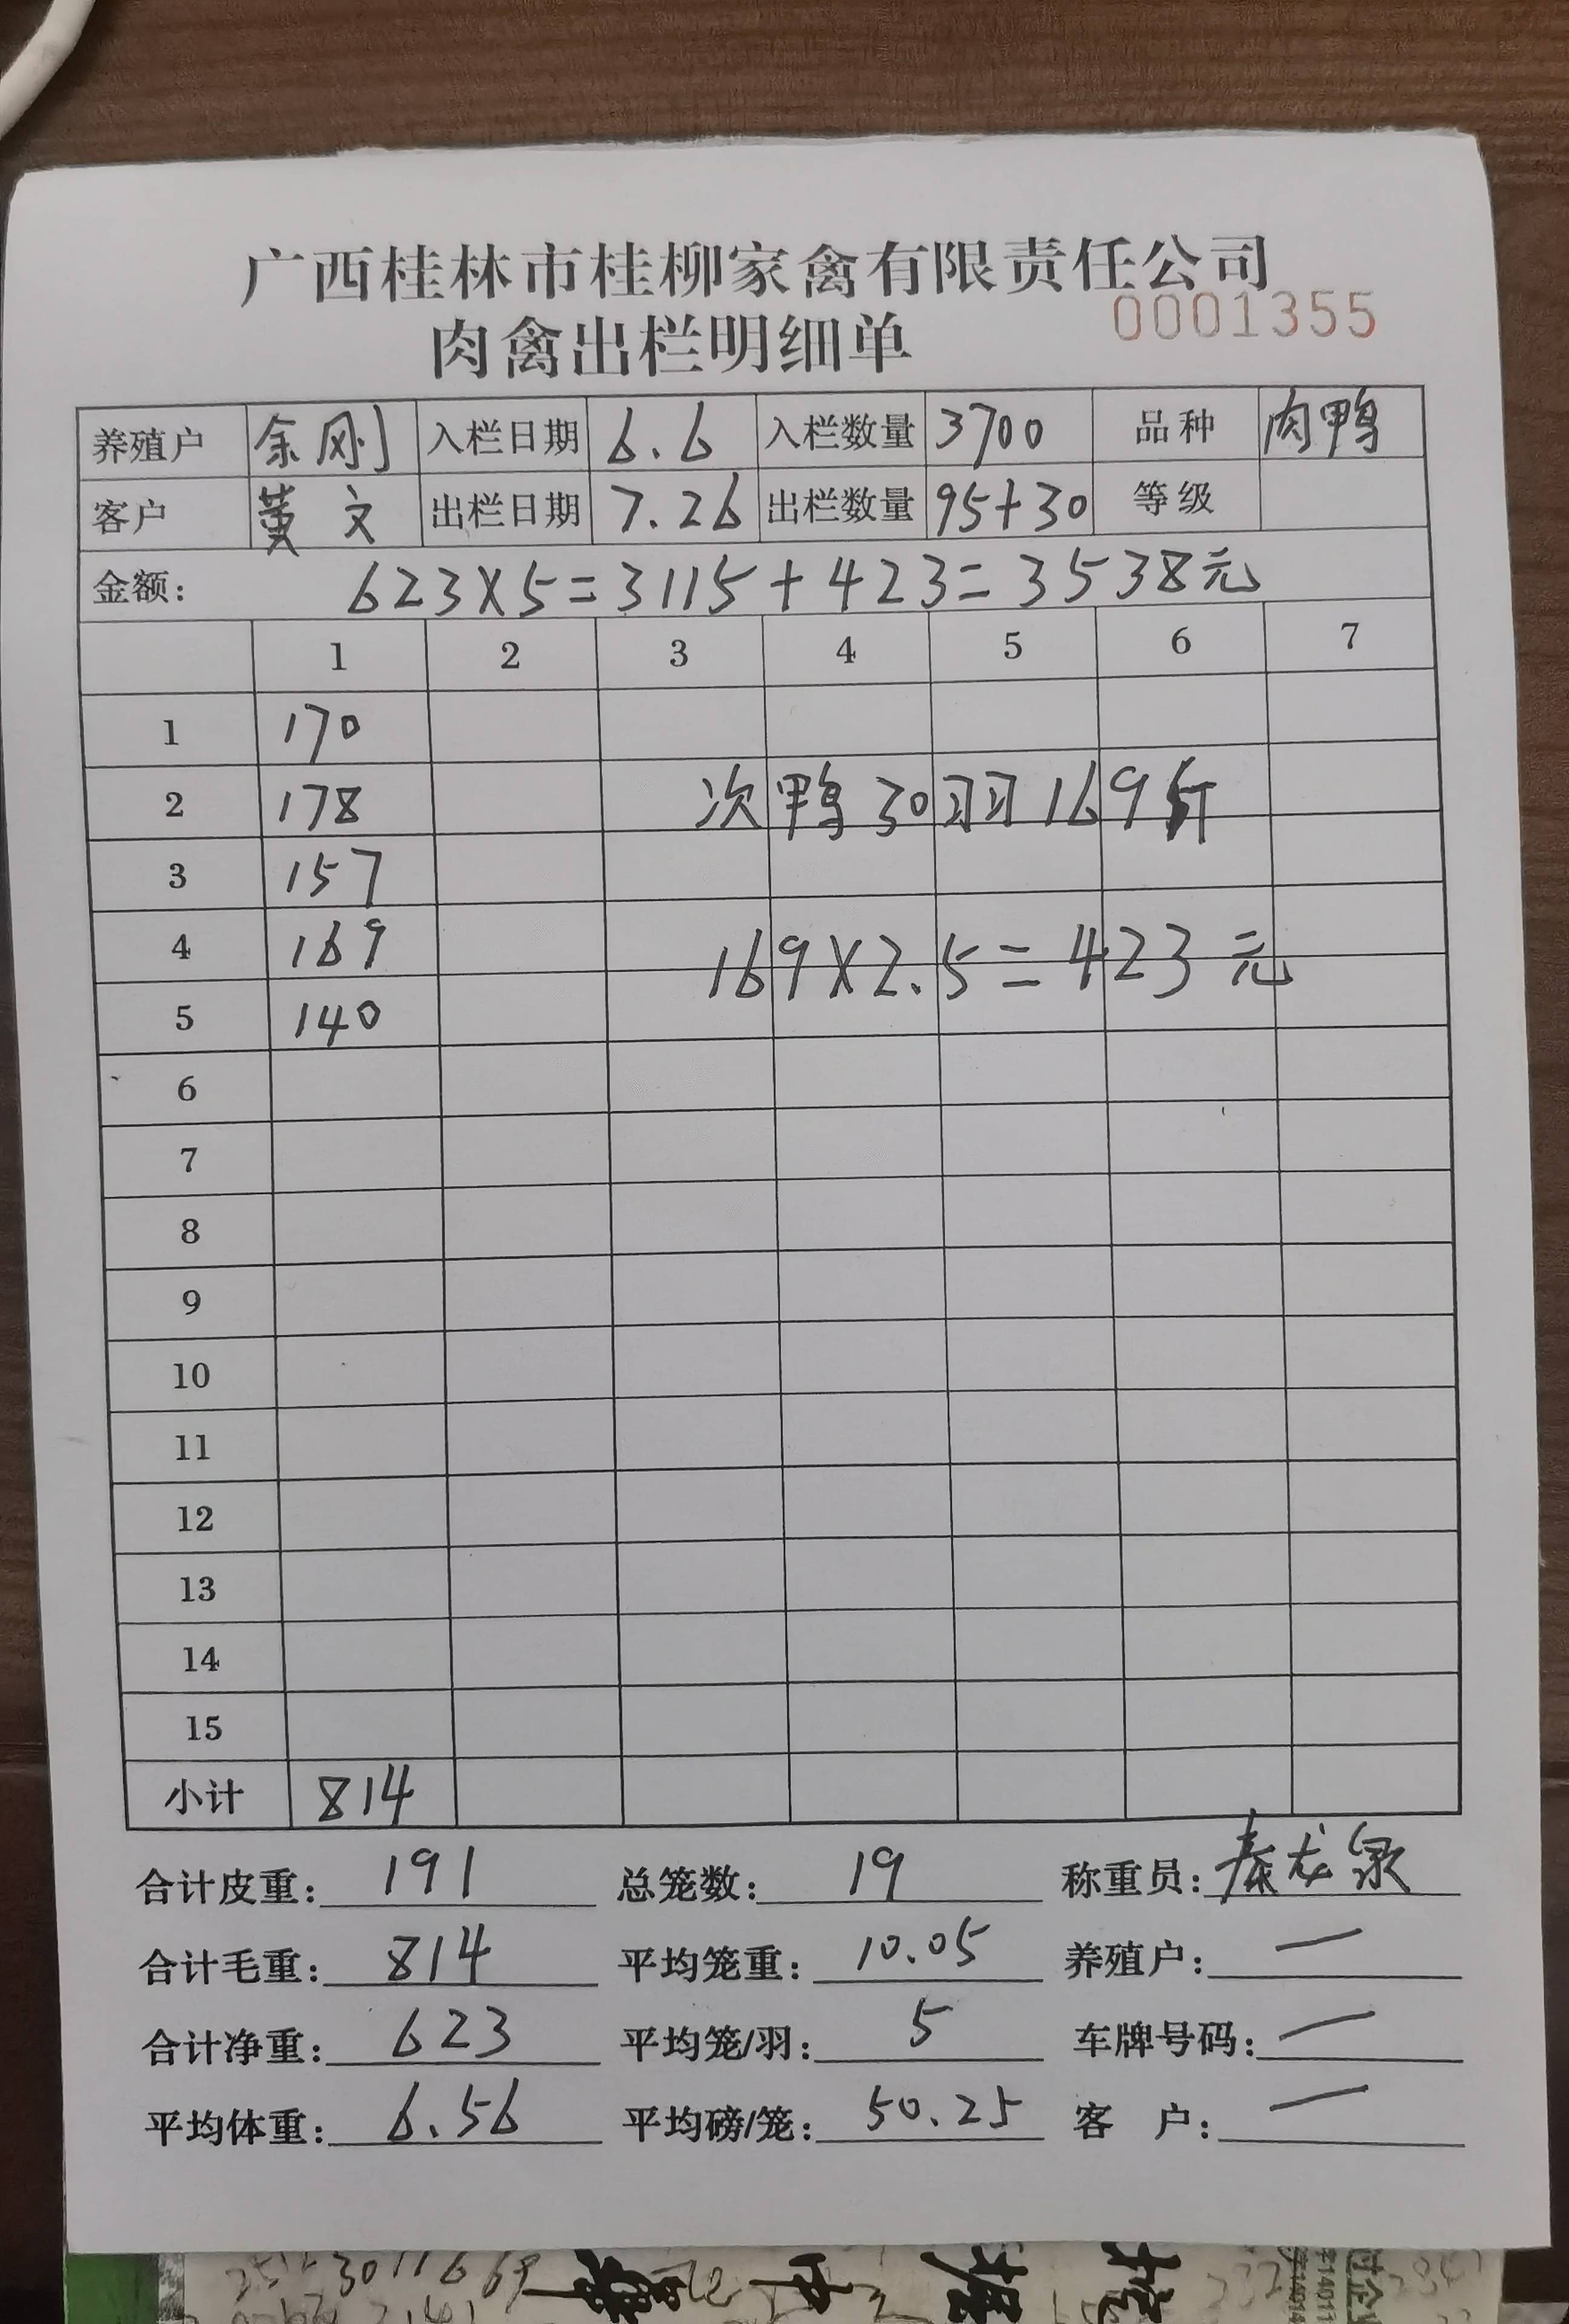 广西桂林市桂柳家禽有限责任公司
肉禽出栏明细单 0001355
养殖户 余刚 入栏日期 6.6 入栏数量 3700 品种 肉鸭
客户 董文 出栏日期 7.26 出栏数量 95+30 等级
金额: 623×5=3115+423=3538元
1 2 3 4 5 6 7
1 170
2 178 次鸭30羽169斤
3 157
4 169 169×2.5=423元
5 140
6
7
8
9
10
11
12
13
14
15
小计 814
合计皮重: 191 总笼数: 19 称重员: 秦龙泉
合计毛重: 814 平均笼重: 10.05 养殖户: 一
合计净重: 623 平均笼/羽: 5 车牌号码: 一
平均体重: 6.56 平均磅/笼: 50.25 客户: 一